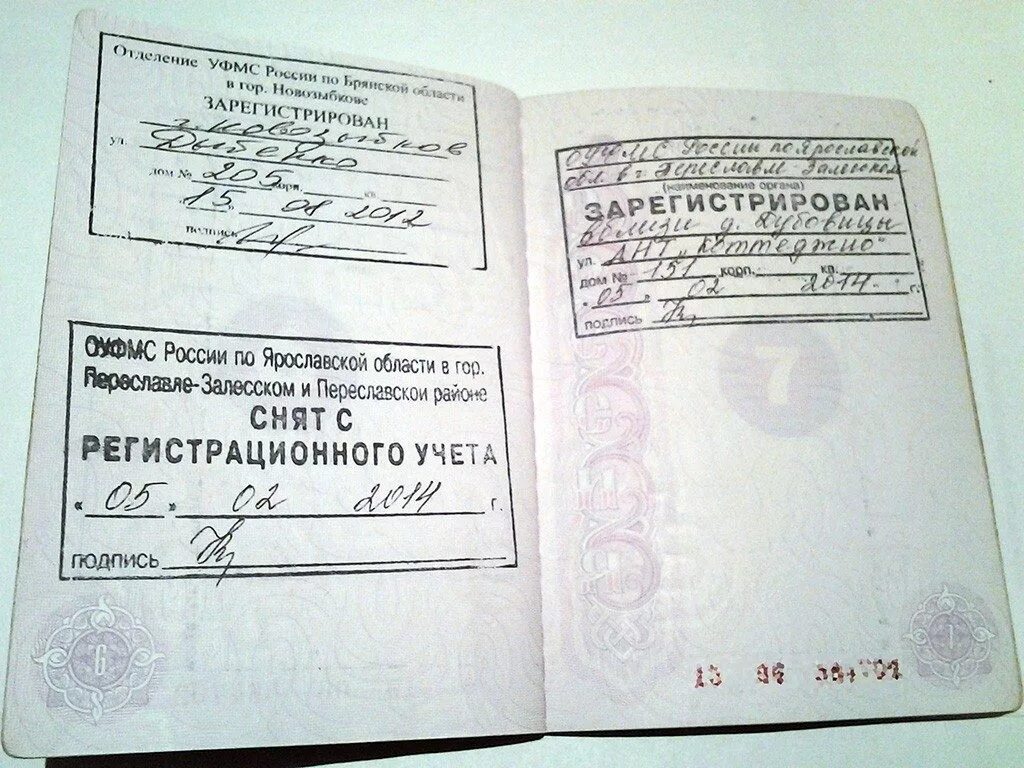 Отделение УФМС России по Брянской области
в гор. Новозыбкове
ЗАРЕГИСТРИРОВАН
г. Новозыбков
ул. Дыбенко
дом № 205 корп. кв.
15 " 08 2012
подпись
ОУФМС России по Ярославской области в гор.
Переславле-Залесском и Переславском районе
СНЯТ С
РЕГИСТРАЦИОННОГО УЧЕТА
« 05 » 02 2014 г.
подпись
6
ОУФМС России по Ярославской
обл. в г. Переславле-Залесском
(наименование органа)
ЗАРЕГИСТРИРОВАН
вблизи д. Дубовицы
ул. ДНТ „Коттеджно"
дом № 151 корп. кв.
« 05 » 02 2014 г.
подпись
7